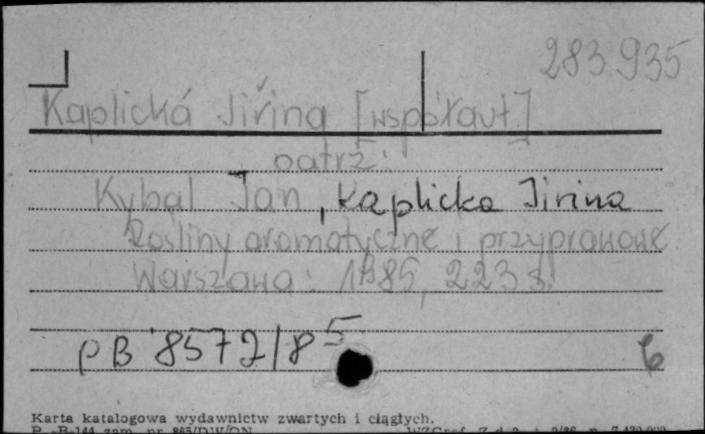 283.935
Kaplická Jiřina [współaut.]
patrz:
Kybal Jan, Kaplicka Jirina
Rośliny aromatyczne i przyprawowe
Warszawa: 1985, 223 s.
pB 8572/85 6
Karta katalogowa wydawnictw zwartych i ciągłych.